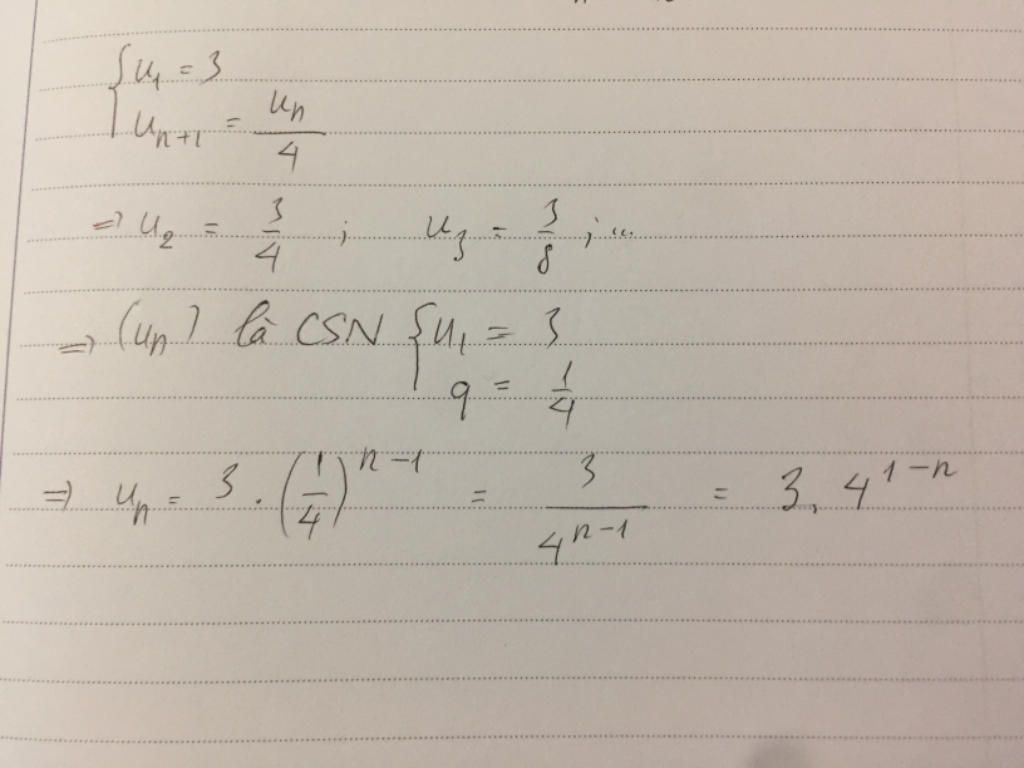 { u₁ = 3
u_{n+1} = u_n / 4
⇒ u₂ = 3/4 ; u₃ = 3/8 ; ...
⇒ (u_n) là CSN { u₁ = 3
q = 1/4
⇒ u_n = 3 . (1/4)^{n-1} = 3 / 4^{n-1} = 3 . 4^{1-n}